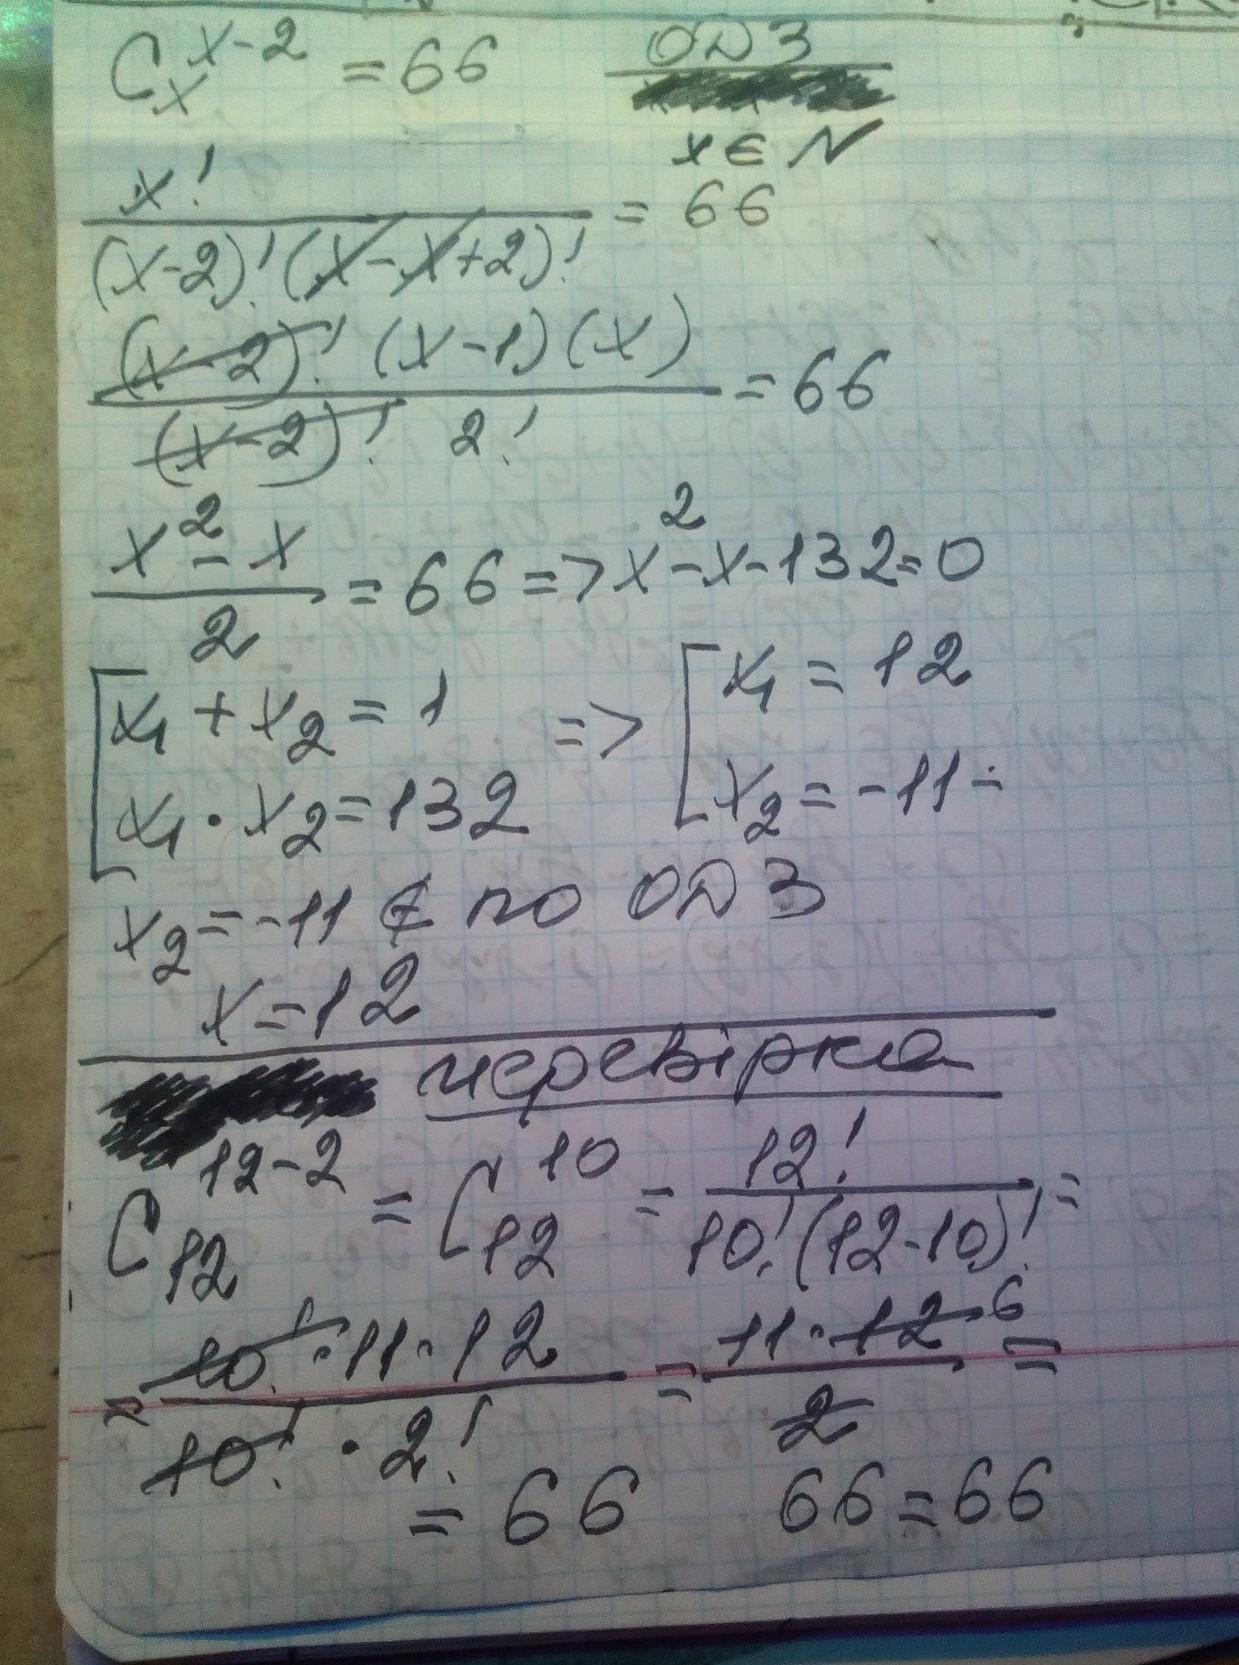 C_x^{x-2} = 66 ОДЗ
x ∈ N
x! / ((x-2)! (x-x+2)!) = 66
((x-2)! (x-1)(x)) / ((x-2)! 2!) = 66
(x^2 - x) / 2 = 66 => x^2-x-132=0
[x_1 + x_2 = 1 => [x_1 = 12
x_1 · x_2 = 132 x_2 = -11 -
x_2 = -11 ∉ по ОДЗ
x = 12
перевірка
C_{12}^{12-2} = C_{12}^{10} = 12! / (10! (12-10)!) =
= (10! · 11 · 12) / (10! · 2!) = (11 · 12 6) / 2 =
= 66 66 = 66